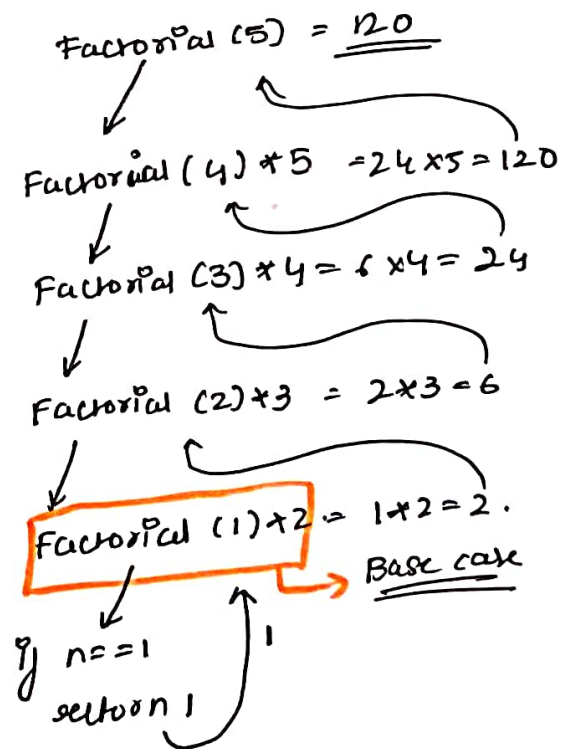 Factorial (5) = 120
Factorial (4) * 5 = 24 x 5 = 120
Factorial (3) * 4 = 6 x 4 = 24
Factorial (2) * 3 = 2 * 3 = 6
Factorial (1) * 2 = 1 * 2 = 2.
Base case
if n = = 1
1
return 1